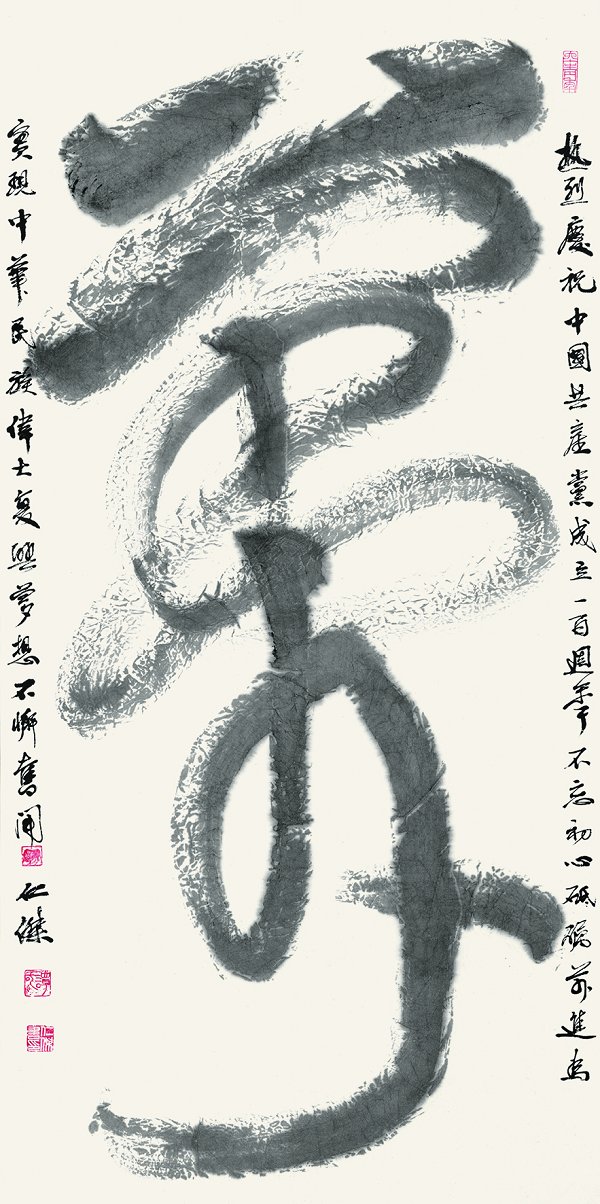 熱烈慶祝中國共產黨成立一百週年不忘初心砥礪前進為
實現中華民族偉大复興夢想不懈奮鬥 仁傑